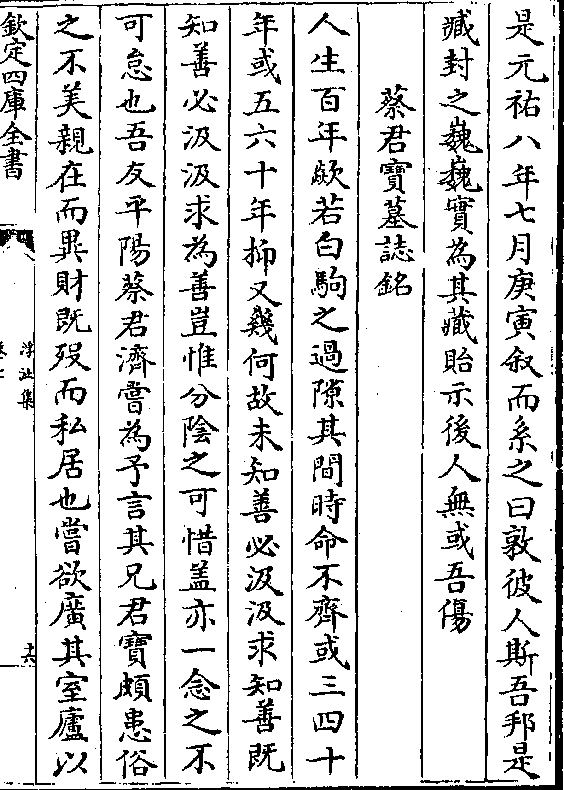 是元祐八年七月庚寅叙而系之曰敦彼人斯吾邦是
臧封之巍巍實為其藏貽示後人無或吾傷
蔡君寶墓誌銘
人生百年歘若白駒之過隙其間時命不齊或三四十
年或五六十年抑又幾何故未知善必汲汲求知善既
知善必汲汲求為善豈惟分陰之可惜盖亦一念之不
可怠也吾友平陽蔡君濟嘗為予言其兄君寶頗患俗
之不美親在而異財既歿而私居也嘗欲廣其室廬以
欽定四庫全書
浮沚集
十六